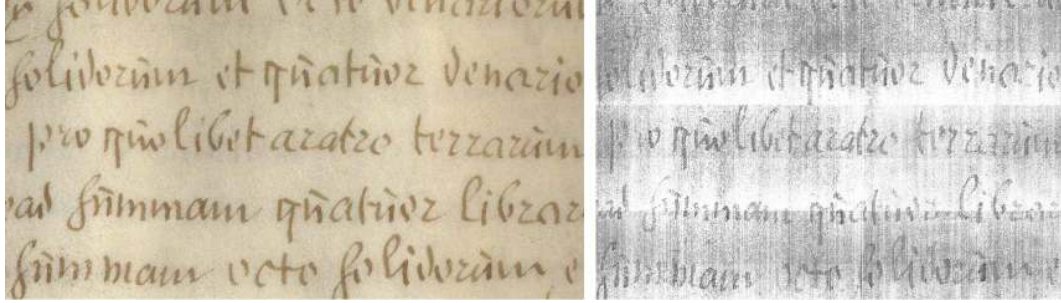 solidorum et octo denariorum
solidorum et quatuor denario
pro quolibet aratro terrarum
ad summam quatuor librar
summam octo solidorum e
solidorum et quatuor denario
pro quolibet aratro terrarum
ad summam quatuor libra
summam octo solidorum e